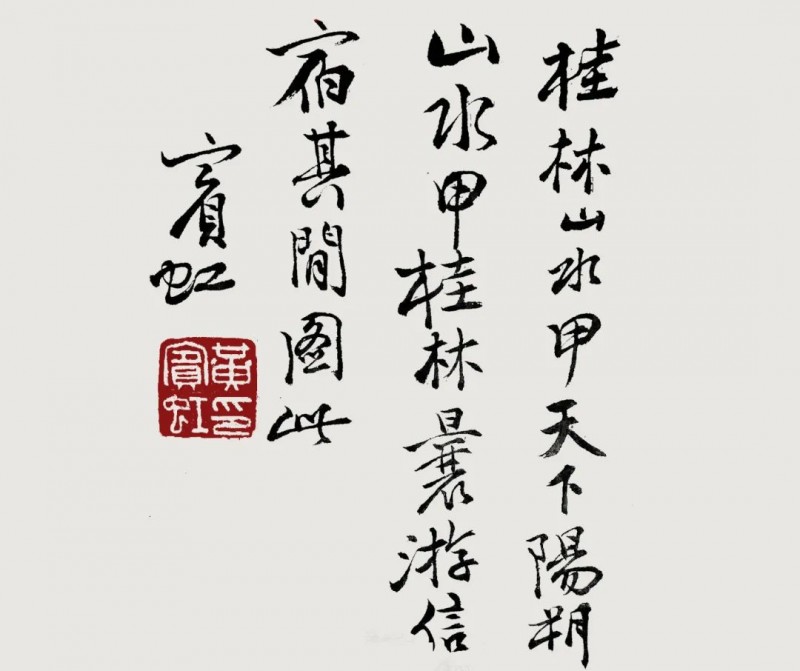 桂林山水甲天下陽朔
山水甲桂林曩游信
宿其閒圖此
賓虹
黃賓虹印